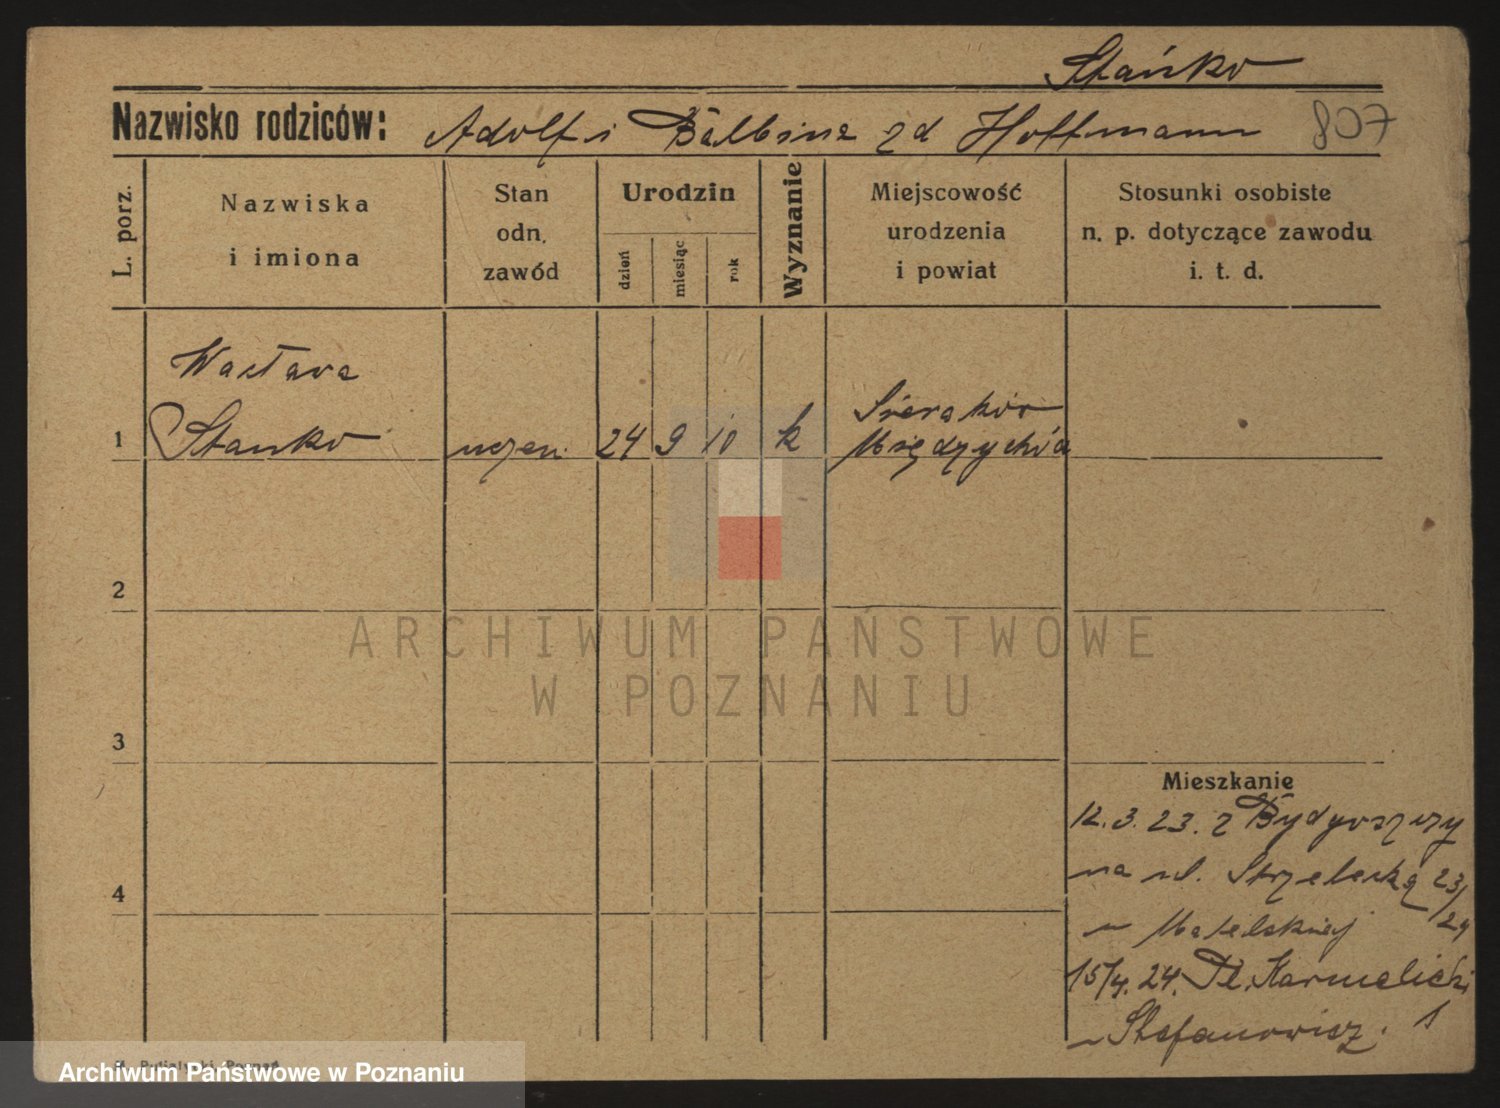 Stańko
Nazwisko rodziców: Adolf i Balbina zd Hoffmann 807
L. porz.
Nazwiska
i imiona
Stan
odn.
zawód
Urodzin
dzień
miesiąc
rok
Wyznanie
Miejscowość
urodzenia
i powiat
Stosunki osobiste
n. p. dotyczące zawodu
i. t. d.
Wacława
1 Stanko uczen. 24 9 10 k Sieraków
Międzychód
2
ARCHIWUM PAŃSTWOWE
W POZNANIU
3
Mieszkanie
12.3.23. z Bydgoszczy
na ul. Strzelecką 23/29
4
u Matelskiej
15/4.24. Pl. Karmelicki 1
u Stefanowicz.
Poznań
Archiwum Państwowe w Poznaniu